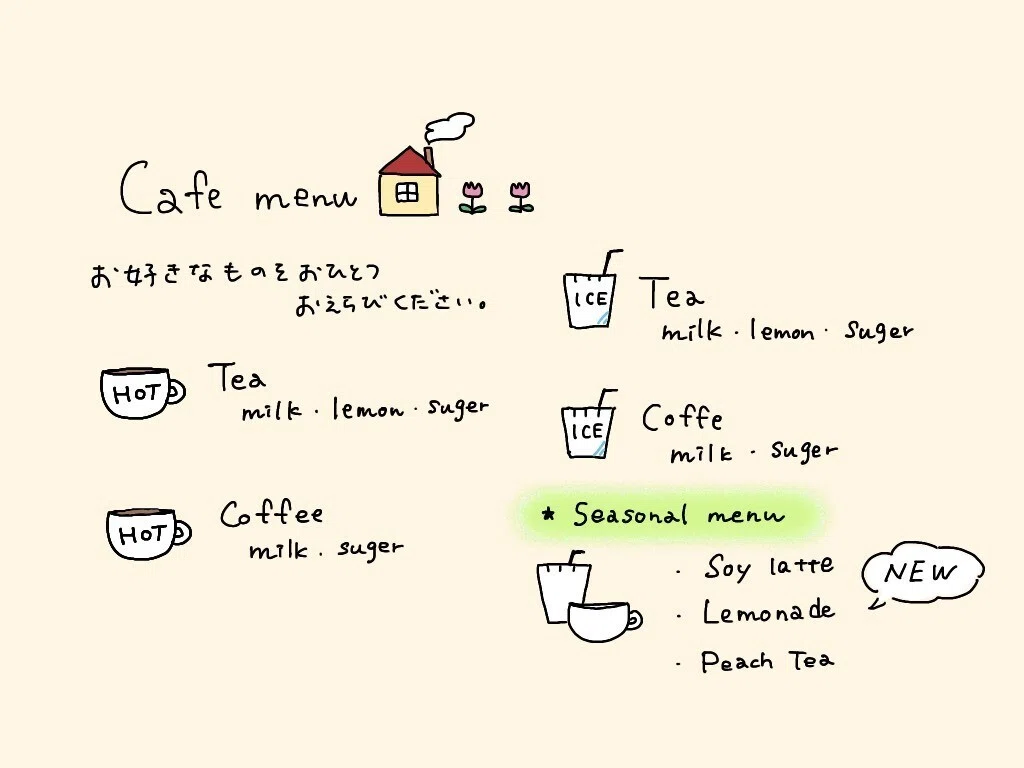 Cafe menu
お好きなものをおひとつ
おえらびください。
HOT Tea
milk・lemon・suger
HOT Coffee
milk・suger
ICE Tea
milk・lemon・suger
ICE Coffe
milk・suger
* Seasonal menu
・Soy latte
NEW
・Lemonade
・Peach Tea